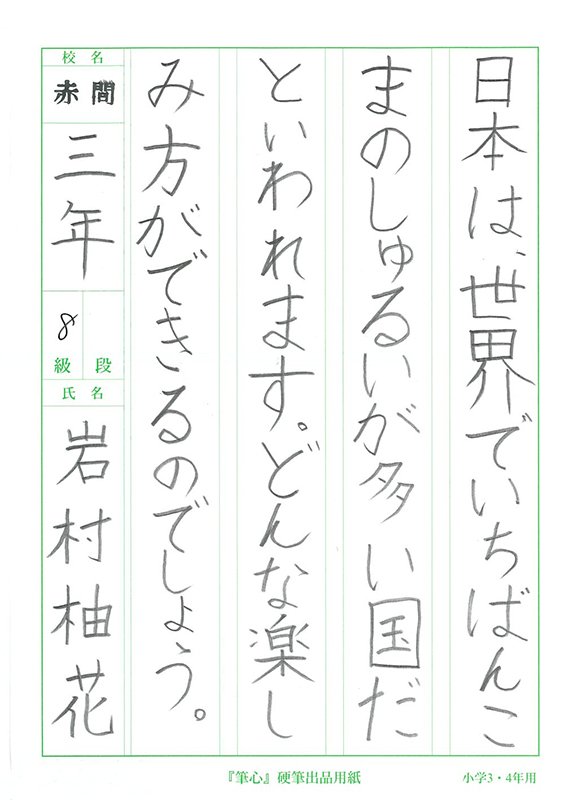 日本は、世界でいちばんこ
まのしゅるいが多い国だ
といわれます。どんな楽し
み方ができるのでしょう。
校名
赤間
三年
8
級 段
氏名
岩村柚花
『筆心』硬筆出品用紙
小学3・4年用